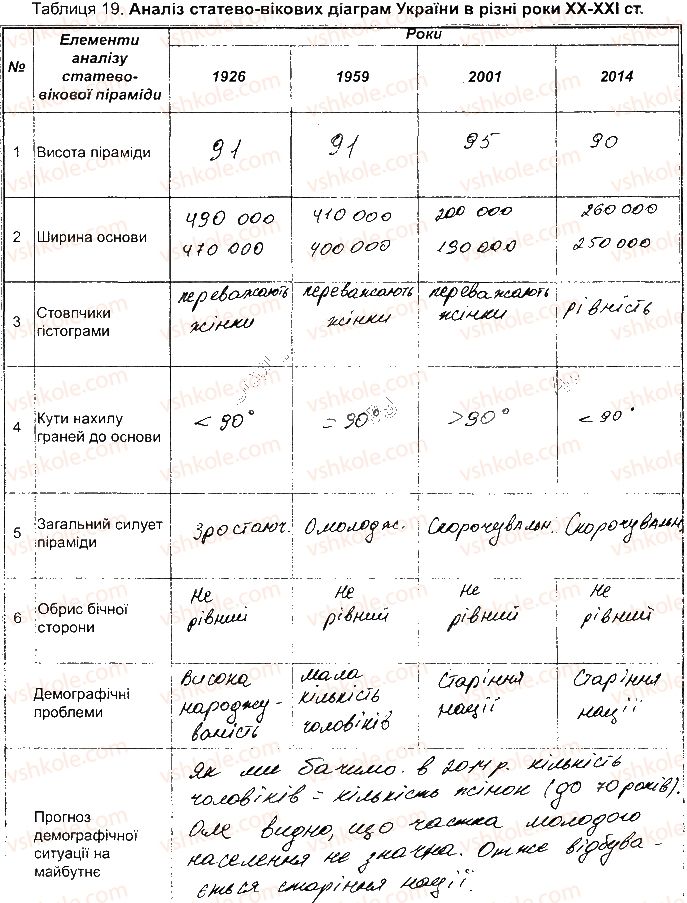 Таблиця 19. Аналіз статево-вікових діаграм України в різні роки XX-XXI ст.
№
Елементи
аналізу
статево-
вікової піраміди
Роки
1926
1959
2001
2014
1
Висота піраміди
91
91
95
90
2
Ширина основи
490 000
470 000
410 000
400 000
200 000
190 000
260 000
250 000
3
Стовпчики
гістограми
переважають
жінки
переважають
жінки
переважають
жінки
рівність
4
Кути нахилу
граней до основи
< 90°
= 90°
> 90°
< 90°
5
Загальний силует
піраміди
Зростаюч.
Омолодж.
Скорочувальн.
Скорочувальн.
6
Обрис бічної
сторони
Не
рівний
Не
рівний
Не
рівний
Не
рівний
Демографічні
проблеми
Висока
народжу-
ваність
мала
кількість
чоловіків
Старіння
нації
Старіння
нації
Прогноз
демографічної
ситуації на
майбутнє
Як ми бачимо в 2014р. кількість
чоловіків = кількість жінок (до 70 років).
Але видно, що частка молодого
населення не значна. Отже відбува-
ється старіння нації.
vshkole.com